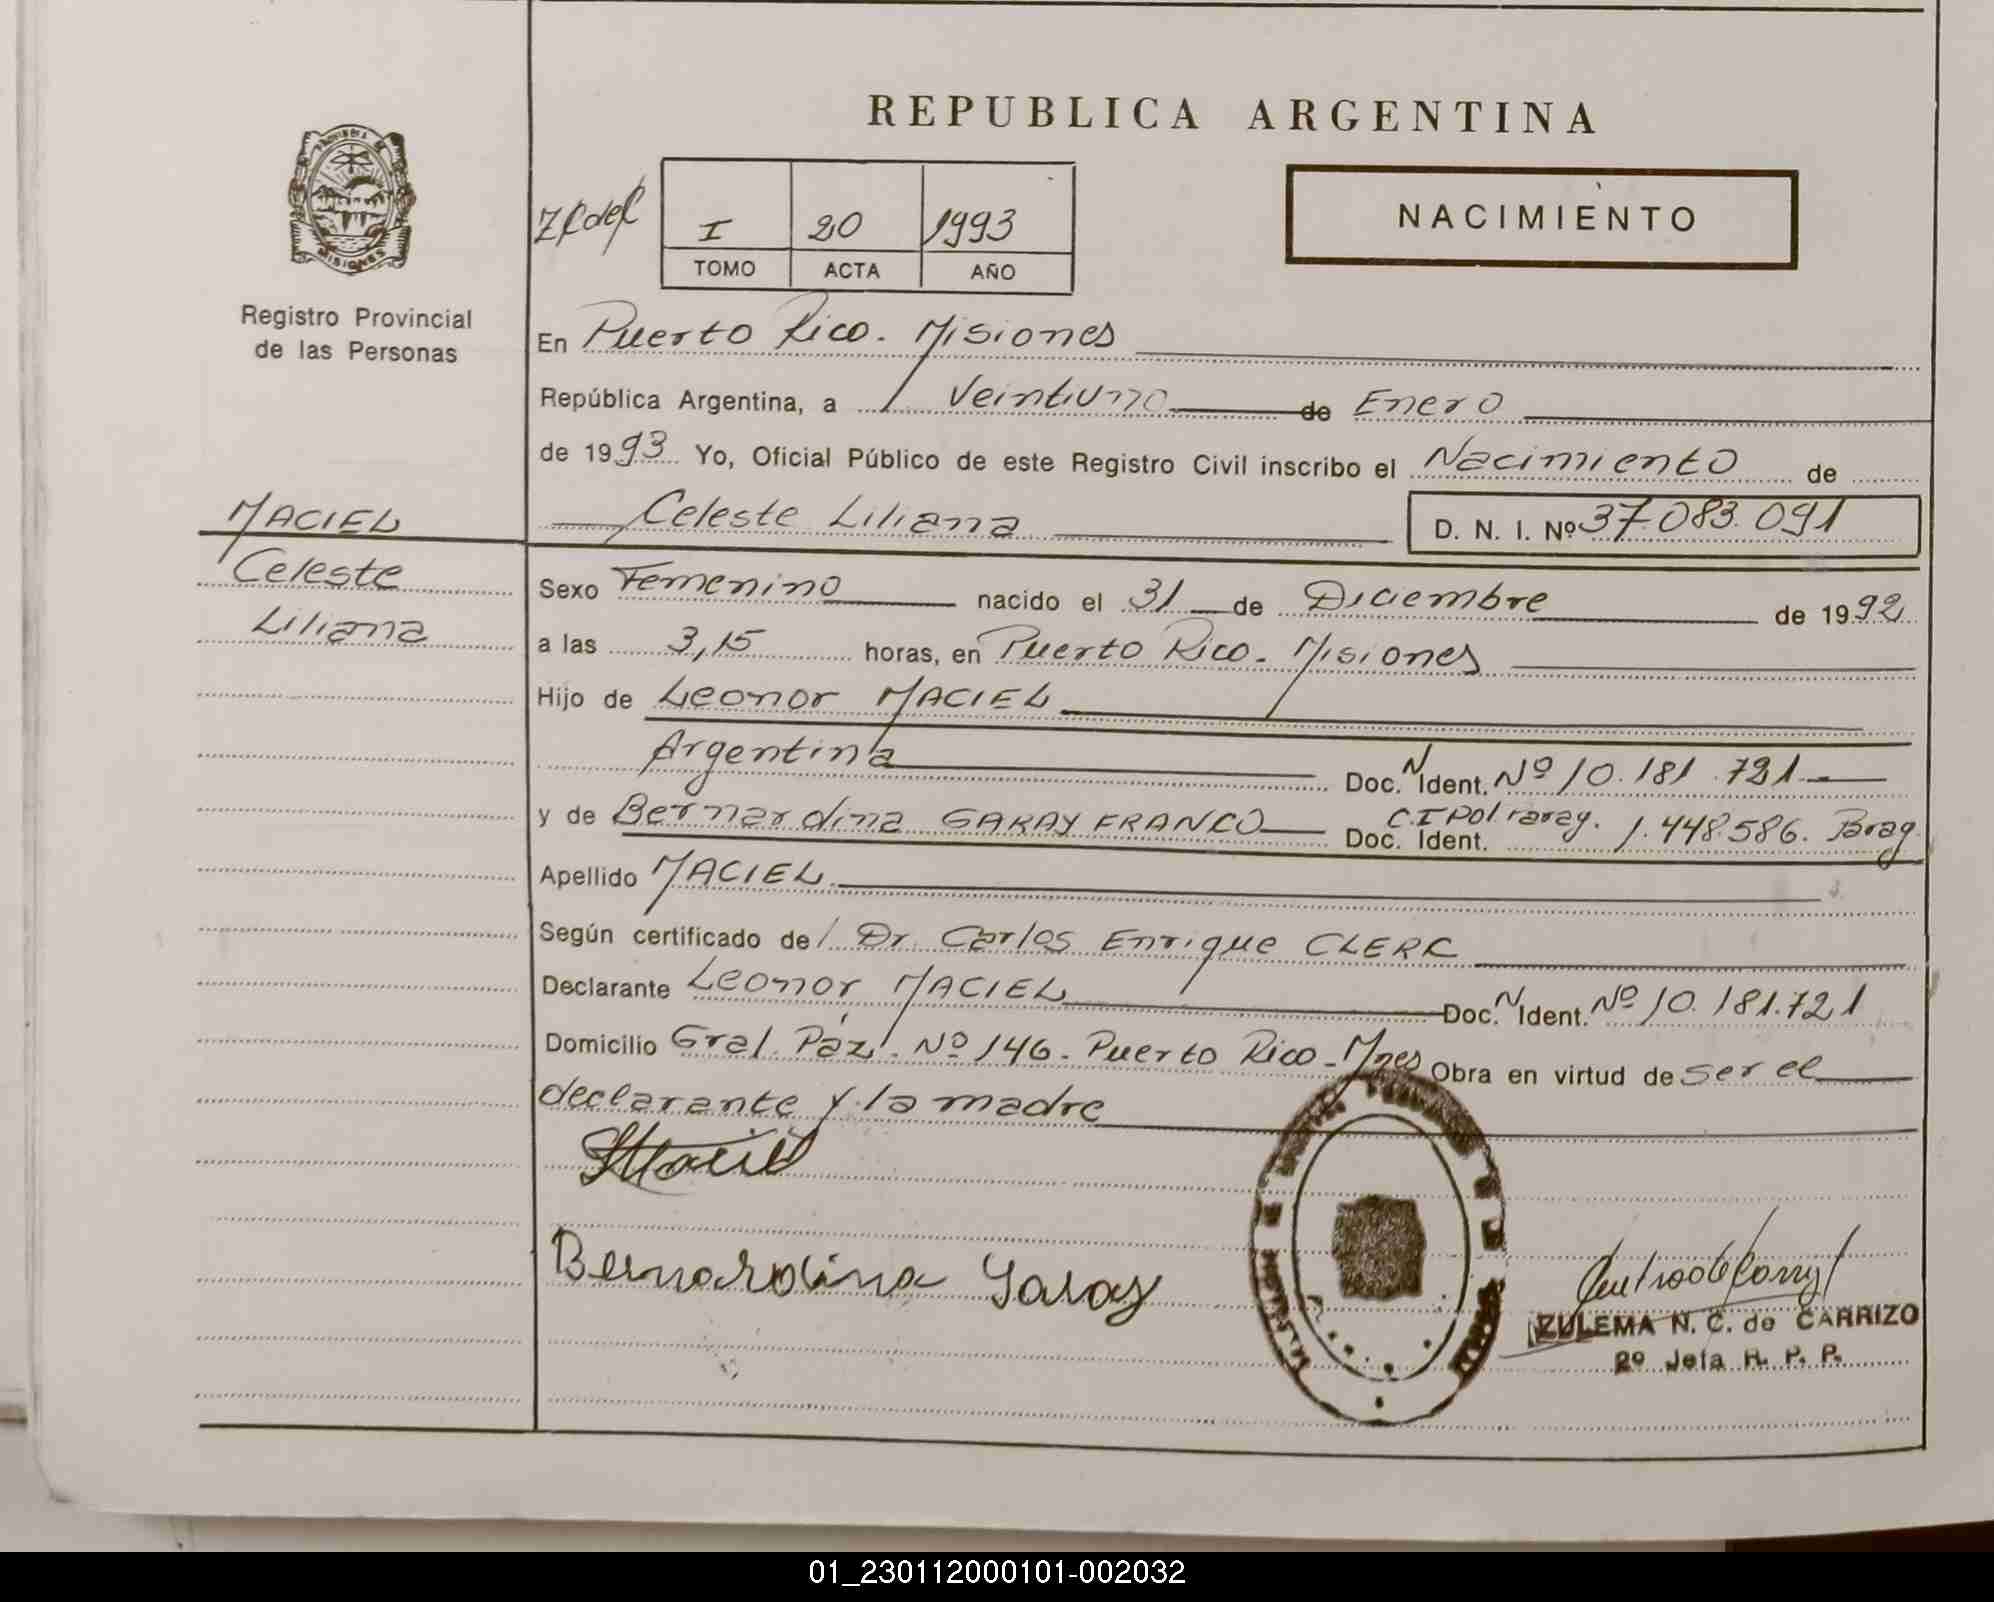 REPUBLICA ARGENTINA
PROVINCIA DE
MISIONES
Registro Provincial
de las Personas
I 20 1993
TOMO ACTA AÑO
NACIMIENTO
En Puerto Rico - Misiones
República Argentina, a Veintiuno de Enero
de 1993 Yo, Oficial Público de este Registro Civil inscribo el Nacimiento de
Celeste Liliana D. N. I. Nº 37.083.091
MACIEL
Celeste
Liliana
Sexo Femenino nacido el 31 de Diciembre de 1992
a las 3,15 horas, en Puerto Rico - Misiones
Hijo de Leonor MACIEL
Argentina Doc. N Ident. Nº 10.181.721
y de Bernardina GARAY FRANCO Doc. Ident. C.I Pol Parag. 1.448.586. Parag.
Apellido MACIEL
Según certificado de Dr. Carlos Enrique CLERC
Declarante Leonor MACIEL Doc. N Ident. Nº 10.181.721
Domicilio Gral. Páz. Nº 146 - Puerto Rico - Mnes Obra en virtud de ser el
declarante y la madre
Bernardina Garay
ZULEMA N. C. de CARRIZO
2º Jefa R. P. P.
01_230112000101-002032